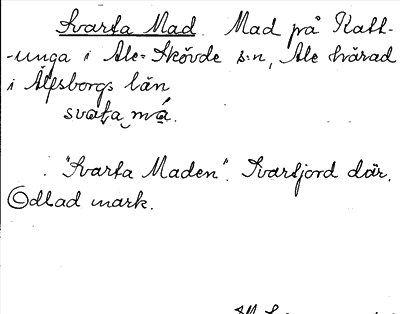 Svarta Mad. Mad på Katt-
-unga i Ale-Skövde s:n, Ale härad
i Älfsborgs län
svata må.
"Svarta Maden". Svartjord där.
Odlad mark.